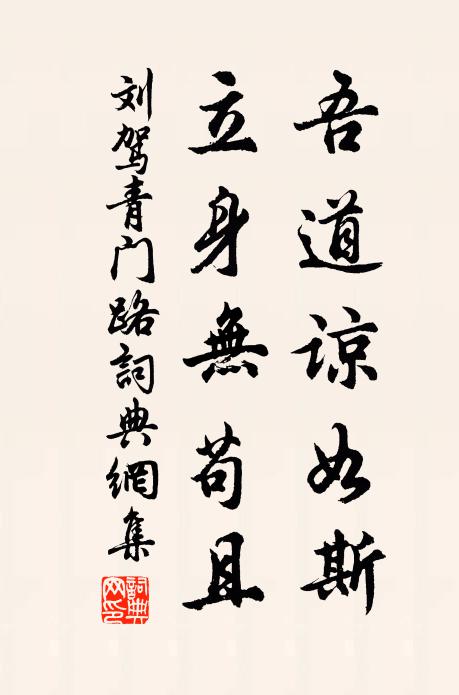 吾道谅如斯
立身無苟且
刘驾青门路詞典網集
詞典
网印